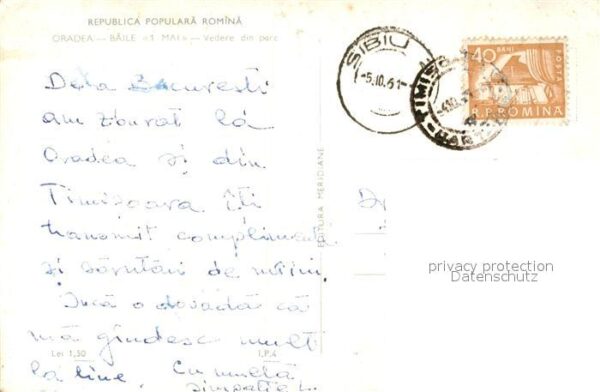 REPUBLICA POPULARĂ ROMÎNĂ
ORADEA — BĂILE «1 MAI» — Vedere din parc
SIBIU
-5.10.61
TIMIȘO
40 BANI
POSTA
R.P.ROMINA
Dela București
am zburat la
Oradea și din
Timișoara îți
transmit complimente
și sărutări de mîini.
Încă o dovadă că
mă gîndesc mult
la tine. Cu multă
simpatie
EDITURA MERIDIANE
Lei 1,50
I.P.4
privacy protection
Datenschutz